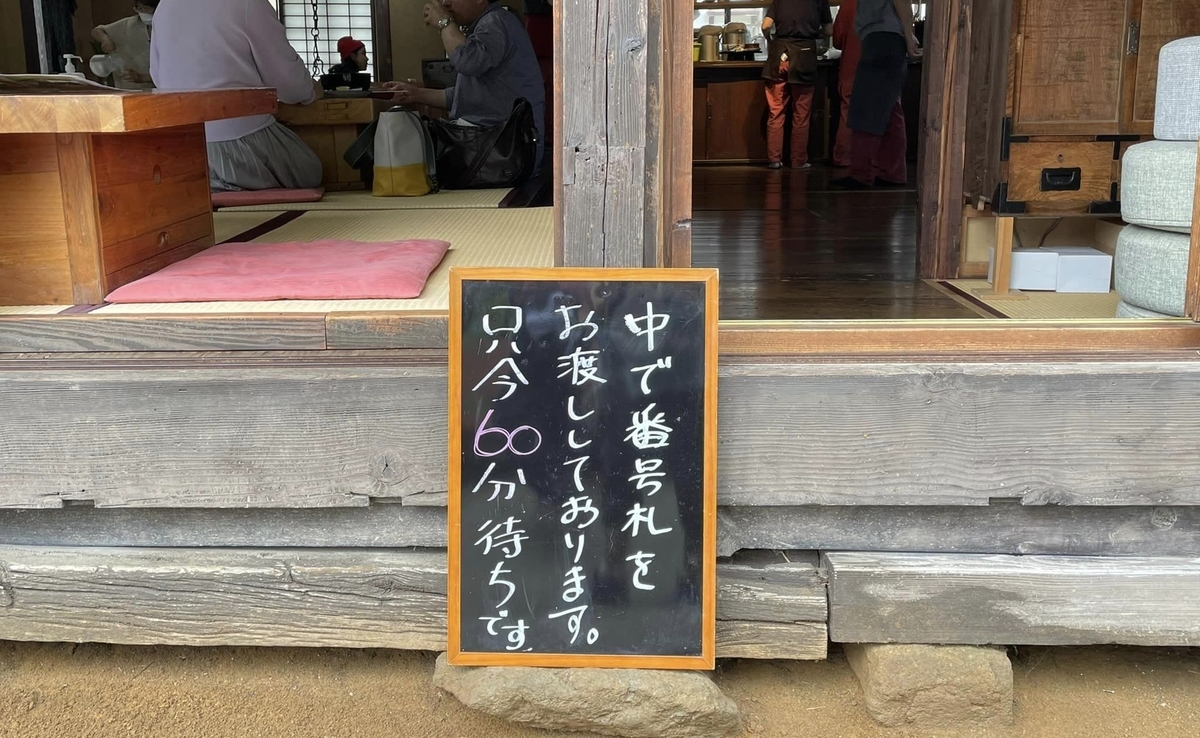 中で番号札を
お渡ししております。
只今60分待ちです